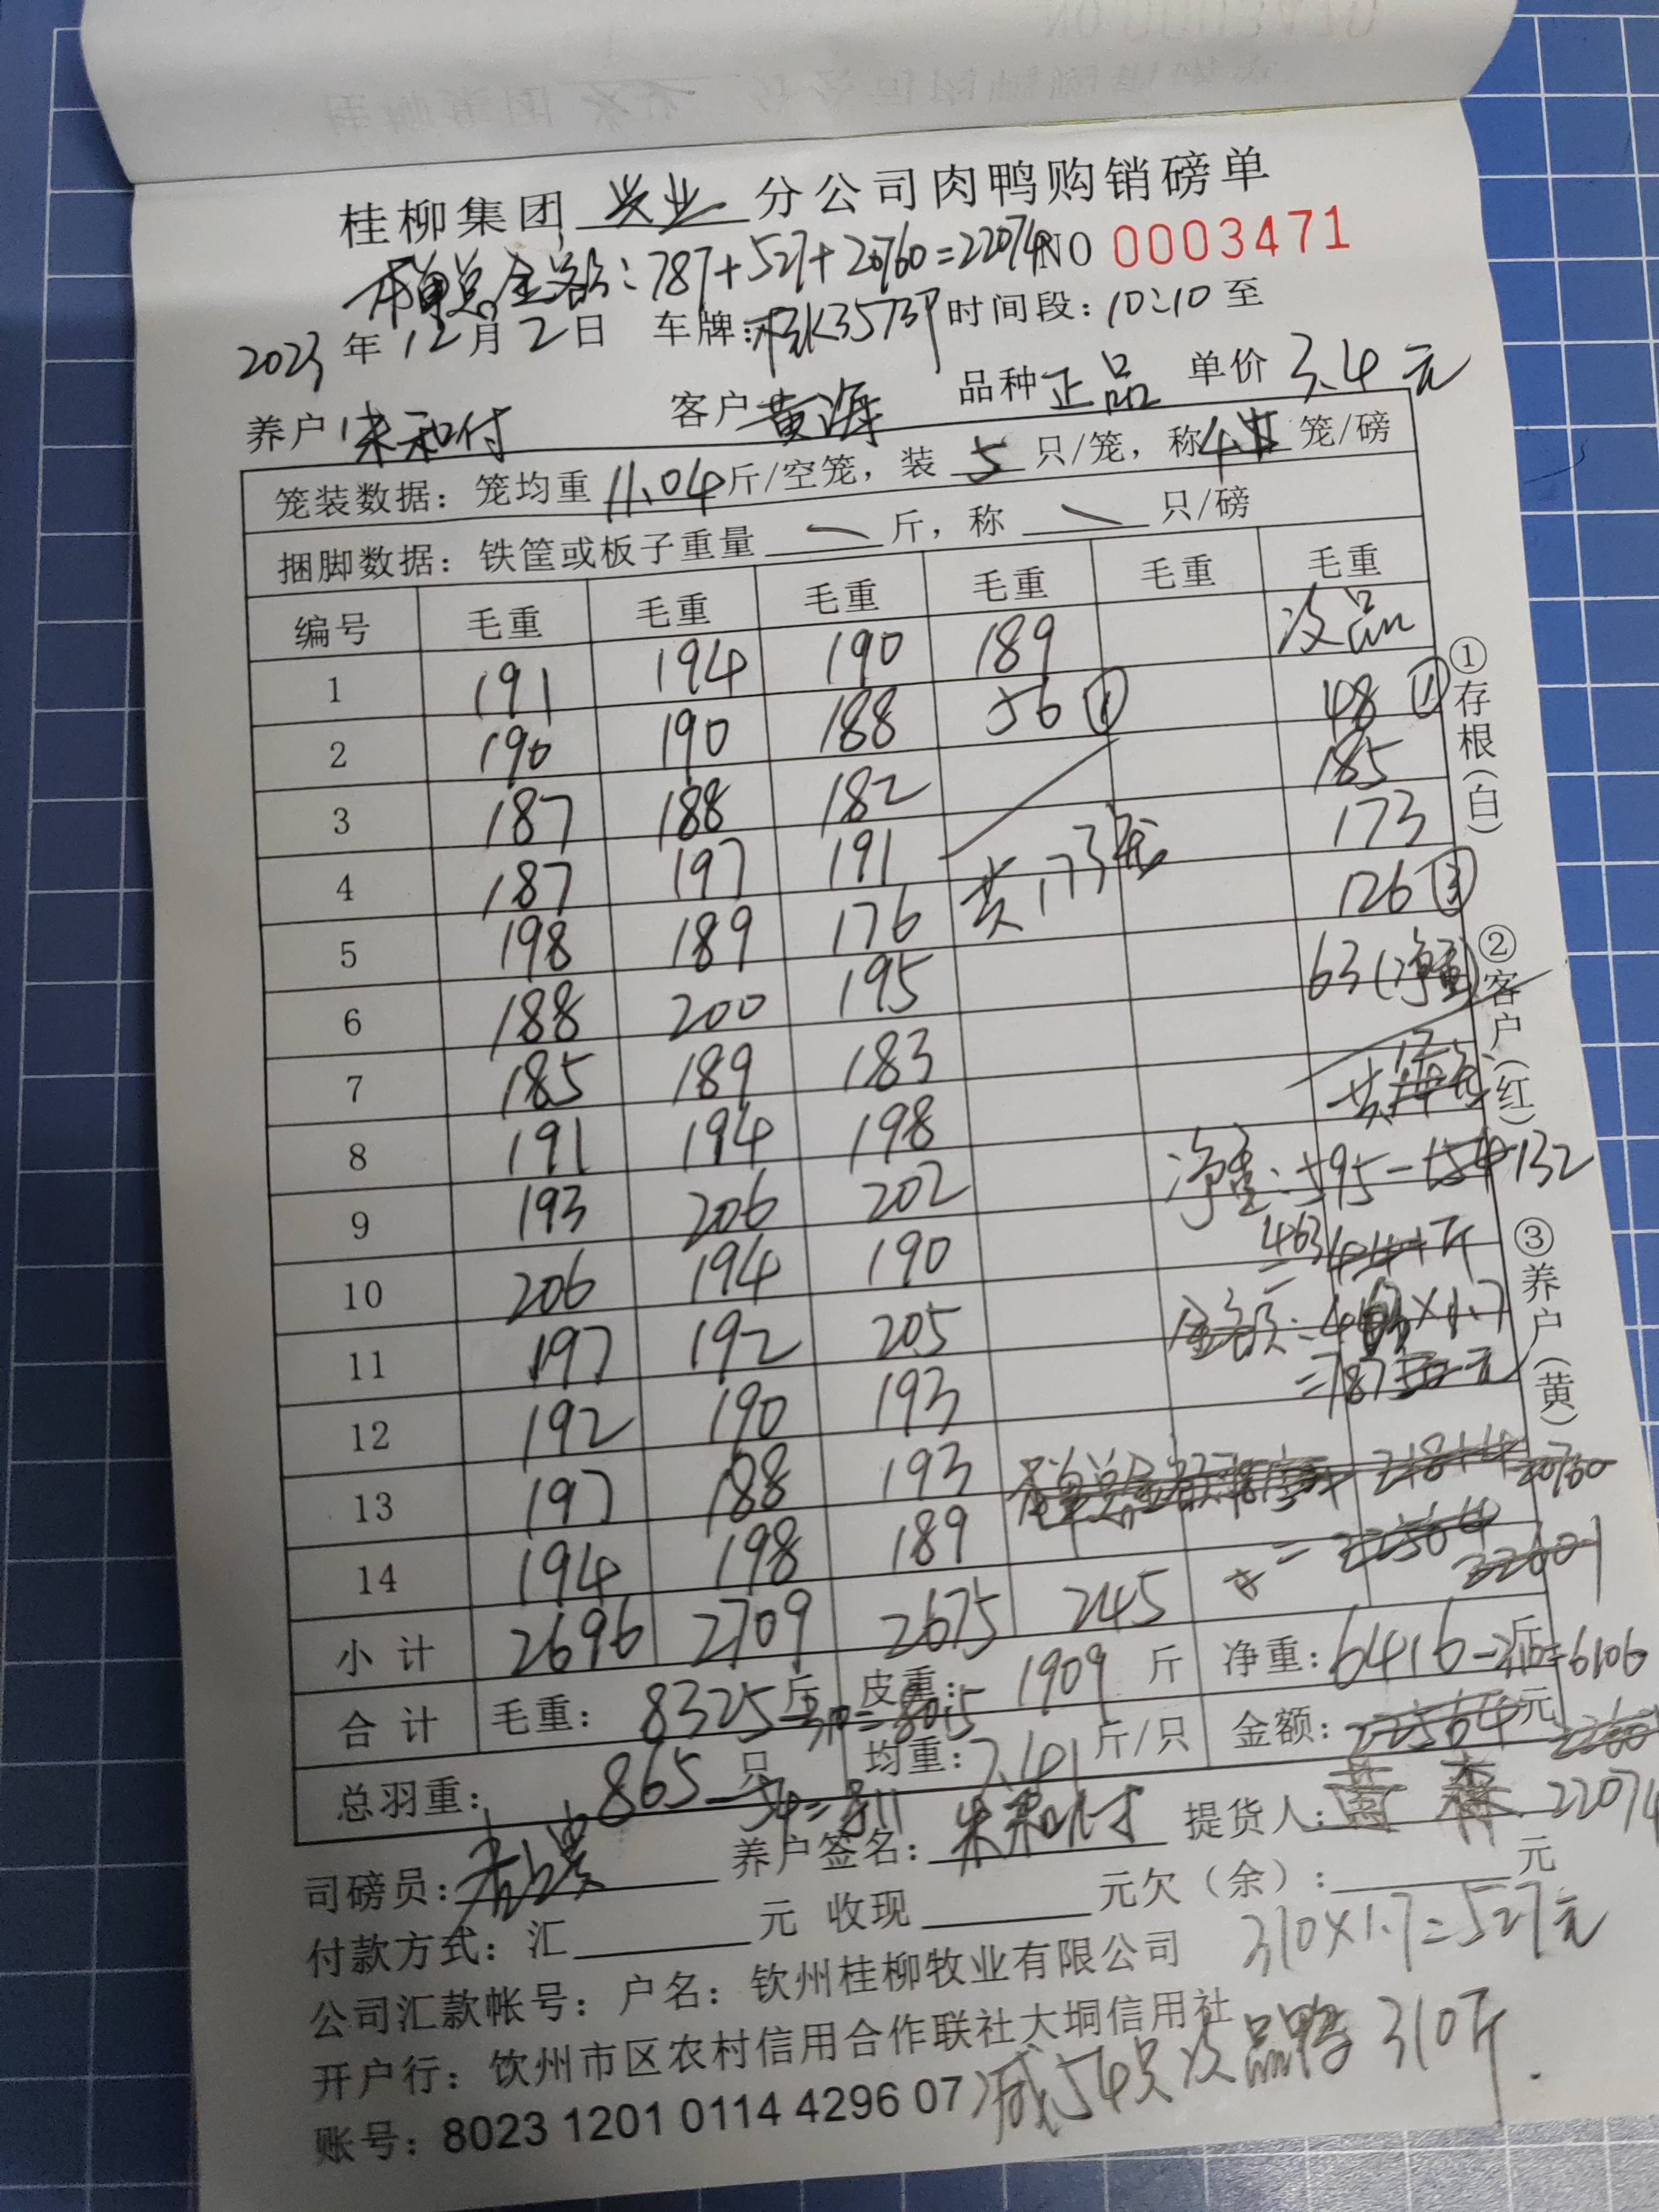 桂柳集团 兴业 分公司肉鸭购销磅单
本单总金额：787+527+20760=22074 NO 0003471
2023年12月2日 车牌：桂K3573P 时间段：10:10至
养户 朱和付 客户 黄海 品种 正品 单价 3.4元
笼装数据：笼均重 11.04 斤/空笼，装 5 只/笼，称 4 笼/磅
捆脚数据：铁筐或板子重量 斤，称 只/磅
编号 毛重 毛重 毛重 毛重 毛重 毛重
次品
1 191 194 190 189
2 190 190 188 56① 48①
3 187 188 182 185
4 187 197 191 173
5 198 189 176 共173笼 126③
6 188 200 195 63(净重)
7 185 189 183
8 191 194 198 共12笼
9 193 206 202 净重：595-154 132
10 206 194 190 =463 441斤
11 197 192 205 金额：463×1.7
12 192 190 193 =787 元
13 197 188 193 21814 20760
14 194 198 189 =22564 22601
小计 2696 2709 2675 245
合计 毛重：8325斤-310=8015 皮重：1909斤 净重：6416-310=6106斤
总羽重：865只-54=811 均重：7.41斤/只 金额：22564元 22601
22074
司磅员： 养户签名：朱和付 提货人：
付款方式：汇 元 收现 元欠（余）： 元
310×1.7=527元
公司汇款帐号：户名：钦州桂柳牧业有限公司
开户行：钦州市区农村信用合作联社大垌信用社
账号：8023 1201 0114 4296 07
减54只次品鸭310斤.
①存根(白)
②客户(红)
③养户(黄)